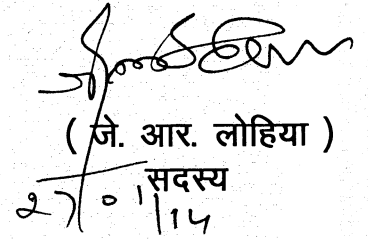 ( जे. आर. लोहिया )
सदस्य
27/01/14